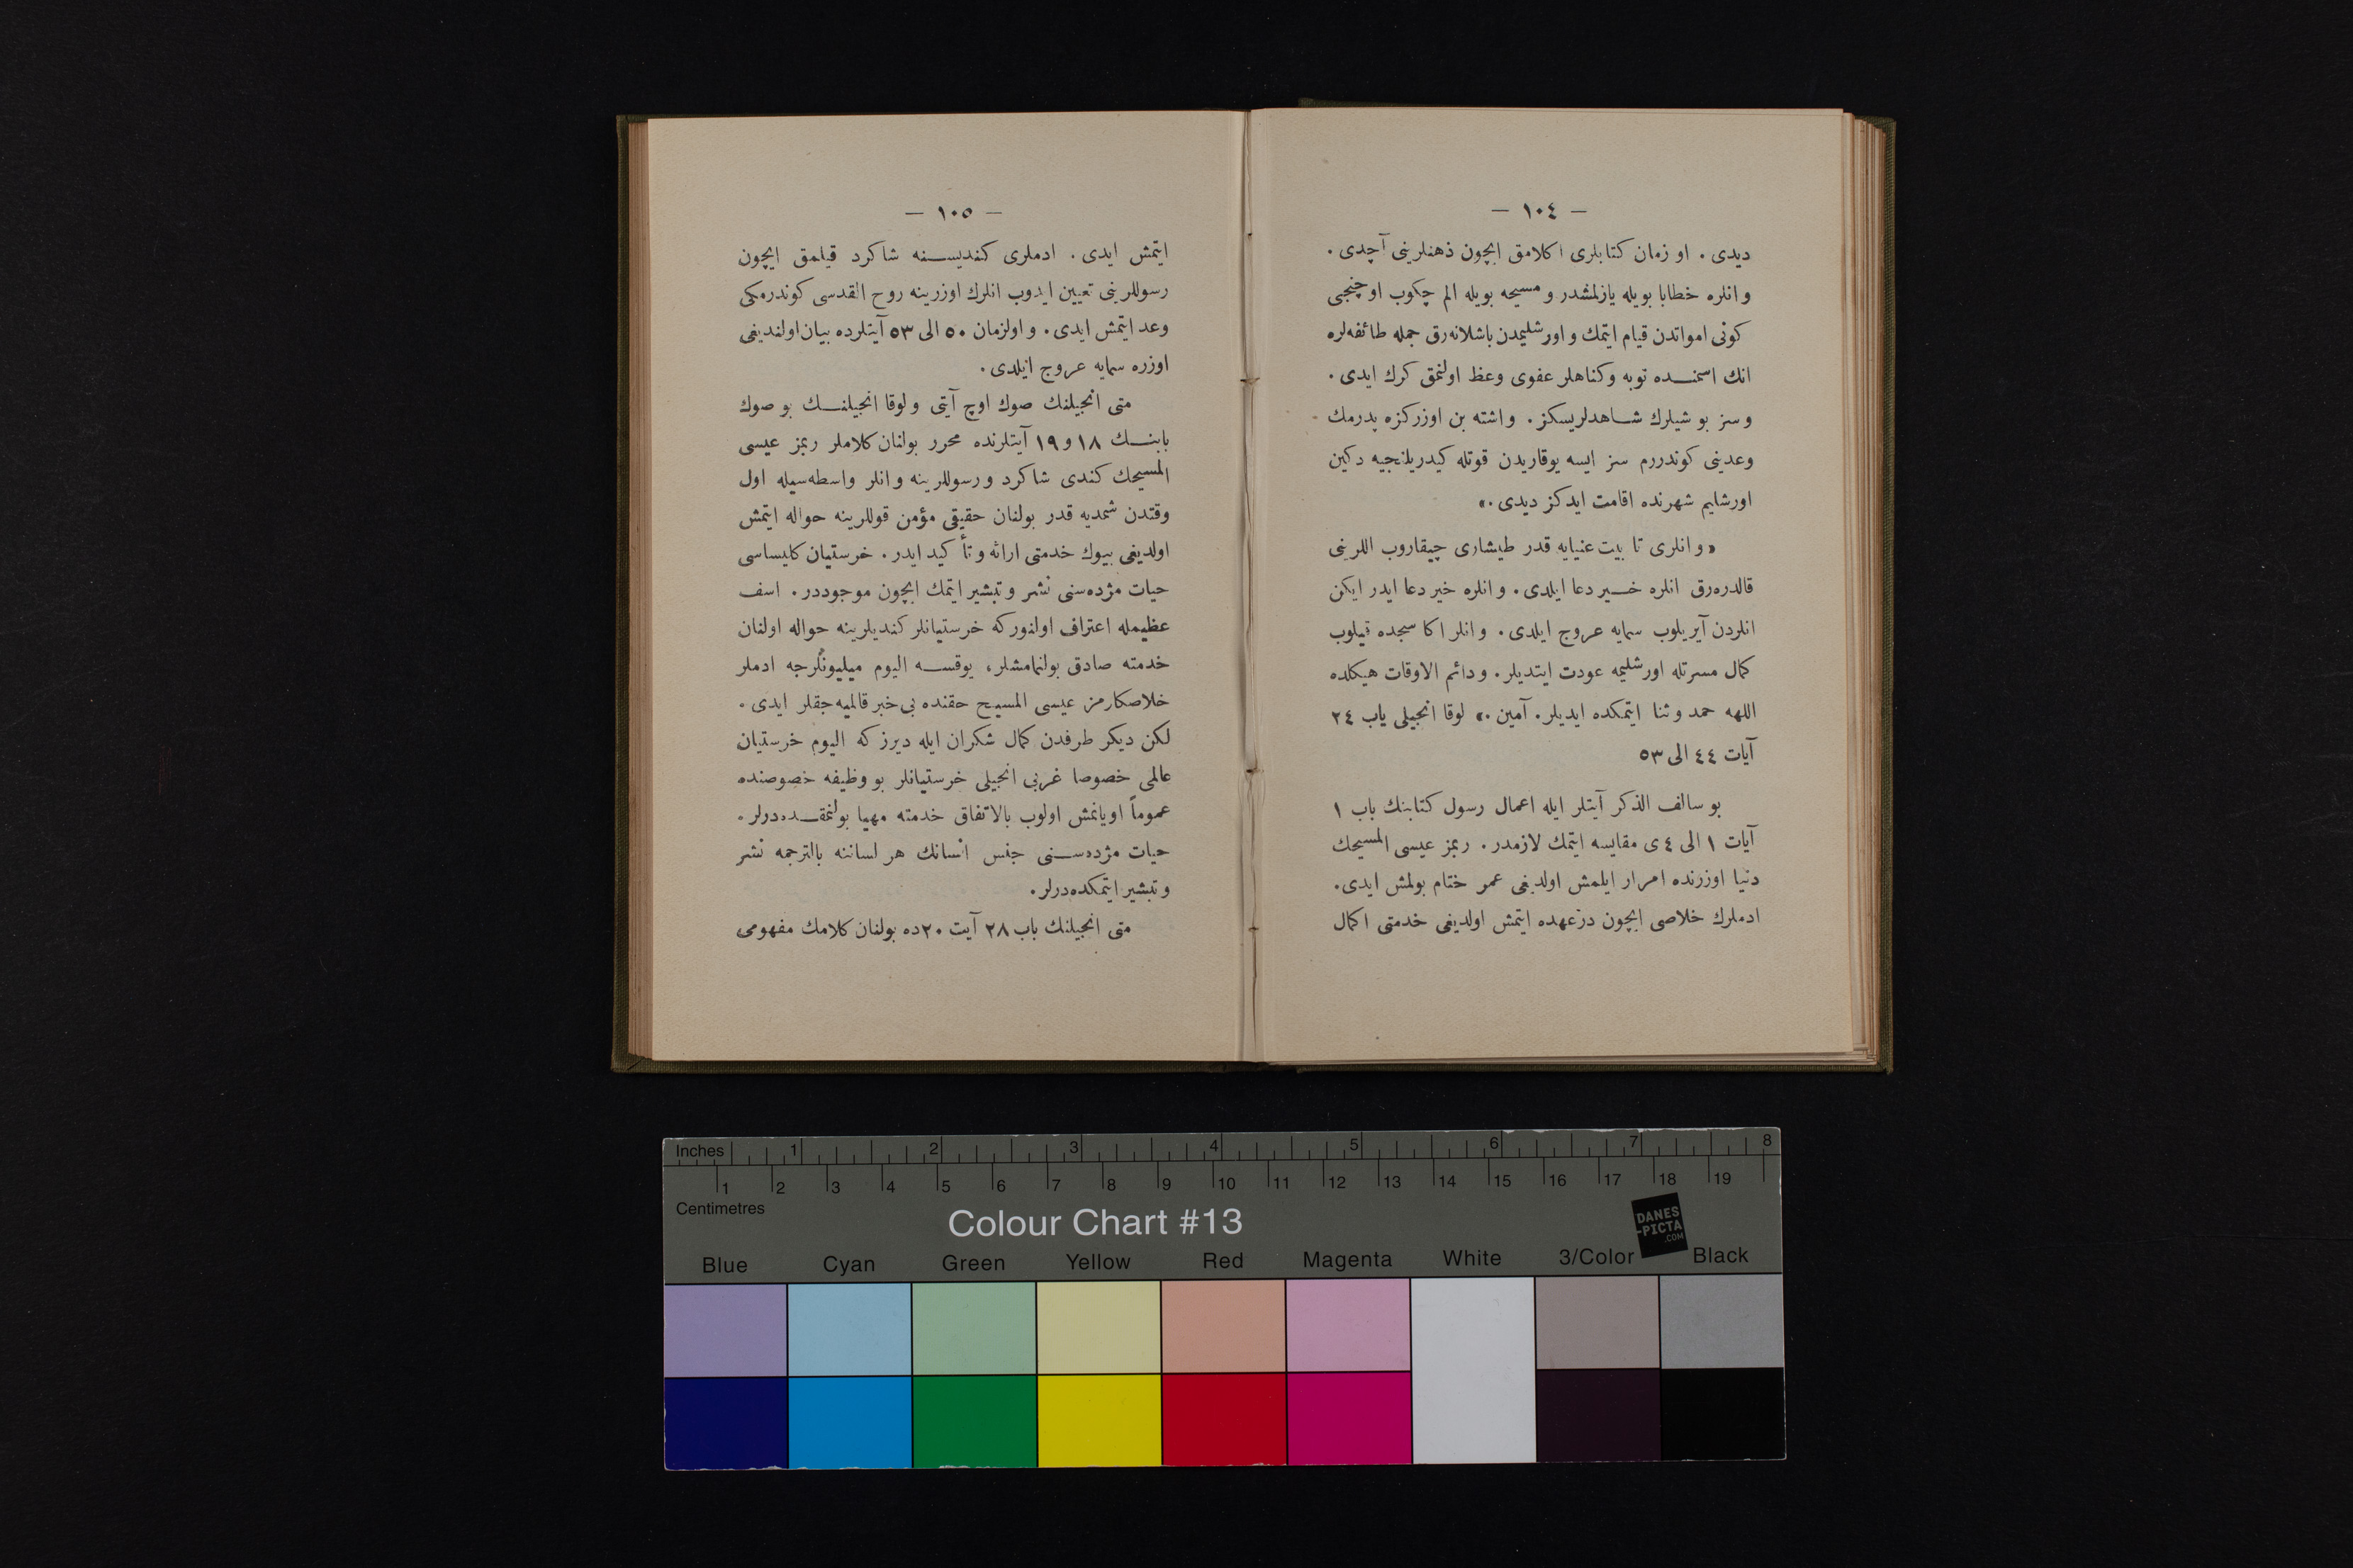 — ١٠٤ —
ديدى . او زمان كتابلرى اكلامق ايچون ذهنلرينى آچدى .
وانلره خطابا بويله يازلمشدر و مسيحه بويله الم چكوب اوچنجى
كونى امواتدن قيام ايتمك و اورشليمدن باشلانه‌رق جمله طائفه‌لره
انك اسمنـده توبه وكناهلر عفوى وعظ اولنمق كرك ايدى .
و سز بو شيلرك شـاهدلريسكز . واشته بن اوزركزه پدرمك
وعدينى كوندررم سز ايسه يوقاريدن قوتله كيدريلنجيه دكين
اورشليم شهرنده اقامت ايدكز ديدى .»
« و انلرى تا بيت عنيايه قدر طيشارى چيقاروب اللرينى
قالدره‌رق انلره خـير دعا ايلدى . وانلره خير دعا ايدر ايكن
انلردن آيريلوب سمايه عروج ايلدى . وانلر اكا سجده قيلوب
كمال مسرتله اورشليمه عودت ايتديلر . ودائم الاوقات هيكلده
اللهه حمد و ثنا ايتمكده ايديلر . آمين .» لوقا انجيلى باب ٢٤
آيات ٤٤ الى ٥٣
بو سالف الذكر آيتلر ايله اعمال رسول كتابنك باب ١
آيات ١ الى ٤ ى مقايسه ايتمك لازمدر . ربمز عيسى المسيحك
دنيا اوزرنده امرار ايلمش اولديغى عمر ختام بولمش ايدى .
ادملرك خلاصى ايچون درعهده ايتمش اولديغى خدمتى اكمال
— ١٠٥ —
ايتمش ايدى . ادملرى كنديسـنه شاكرد قيلمق ايچون
رسوللرينى تعيين ايدوب انلرك اوزرينه روح القدسى كوندرمكى
وعد ايتمش ايدى . و اولزمان ٥٠ الى ٥٣ آيتلرده بيان اولنديغى
اوزره سمايه عروج ايلدى .
متى انجيلنك صوك اوچ آيتى و لوقا انجيلنـك بو صوك
بابنـك ١٨ و ١٩ آيتلرنده محرر بولنان كلاملر ربمز عيسى
المسيحك كندى شاكرد و رسوللرينه و انلر واسطه‌سيله اول
وقتدن شمديه قدر بولنان حقيقى مؤمن قوللرينه حواله ايتمش
اولديغى بيوك خدمتى ارائه و تأكيد ايدر . خرستيان كليساسى
حيات مژده‌سنى نشر و تبشير ايتمك ايچون موجوددر . اسف
عظيمله اعتراف اولنور كه خرستيانلر كنديلرينه حواله اولنان
خدمته صادق بولنمامشلر، يوقسـه اليوم ميليونلرجه ادملر
خلاصكارمز عيسى المسيح حقنده بى خبر قالميه‌جقلر ايدى .
لكن ديكر طرفدن كمال شكران ايله ديرز كه اليوم خرستيان
عالمى خصوصا غربى انجيلى خرستيانلر بو وظيفه خصوصنده
عموماً اويانمش اولوب بالاتفاق خدمته مهيا بولنمقـده‌درلر .
حيات مژده‌سـنى جنس انسانك هر لساننه بالترجمه نشر
و تبشير ايتمكده‌درلر .
متى انجيلنك باب ٢٨ آيت ٢٠ ده بولنان كلامك مفهومى
Inches 1 2 3 4 5 6 7 8
1 2 3 4 5 6 7 8 9 10 11 12 13 14 15 16 17 18 19
Centimetres
Colour Chart #13
DANES
-PICTA
.COM
Blue Cyan Green Yellow Red Magenta White 3/Color Black